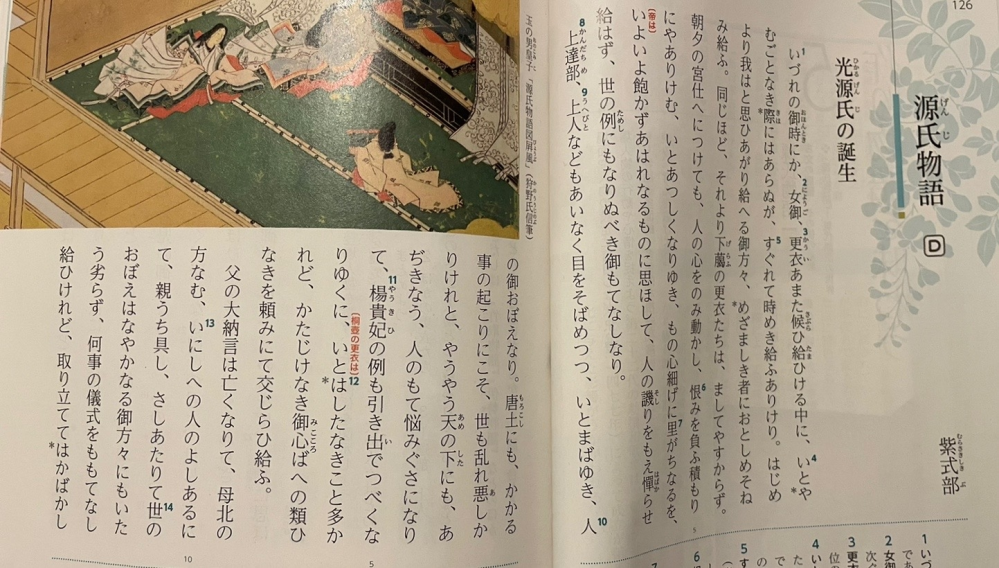 126
源氏物語 D
紫式部
光源氏の誕生
いづれの御時にか、女御、更衣あまた候ひ給ひける中に、いとや
むごとなき際にはあらぬが、すぐれて時めき給ふありけり。はじめ
より我はと思ひあがり給へる御方々、めざましき者におとしめそね
み給ふ。同じほど、それより下﨟の更衣たちは、ましてやすからず。
朝夕の宮仕へにつけても、人の心をのみ動かし、恨みを負ふ積もり
にやありけむ、いとあつしくなりゆき、もの心細げに里がちなるを、
〔帝は〕
いよいよ飽かずあはれなるものに思ほして、人の譏りをもえ憚らせ
給はず、世の例にもなりぬべき御もてなしなり。
上達部、上人などもあいなく目をそばめつつ、いとまばゆき、人
玉の男皇子(「源氏物語図屏風」(狩野氏信筆)
の御おぼえなり。唐土にも、かかる
事の起こりにこそ、世も乱れ悪しか
りけれと、やうやう天の下にも、あ
ぢきなう、人のもて悩みぐさになり
て、楊貴妃の例も引き出でつべくな
〔桐壺の更衣は〕
りゆくに、いとはしたなきこと多か
れど、かたじけなき御心ばへの類ひ
なきを頼みにて交じらひ給ふ。
父の大納言は亡くなりて、母北の
方なむ、いにしへの人のよしあるに
て、親うち具し、さしあたりて世の
おぼえはなやかなる御方々にもいた
う劣らず、何事の儀式をももてなし
給ひけれど、取り立ててはかばかし